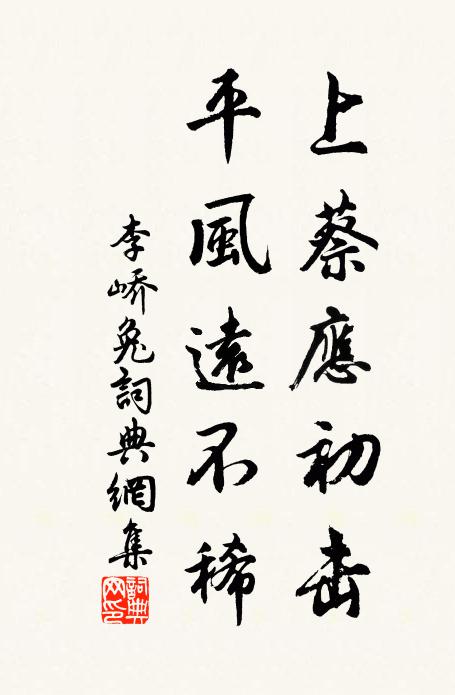 上蔡應初击
平風遠不稀
李峤兔詞典網集
詞典网印